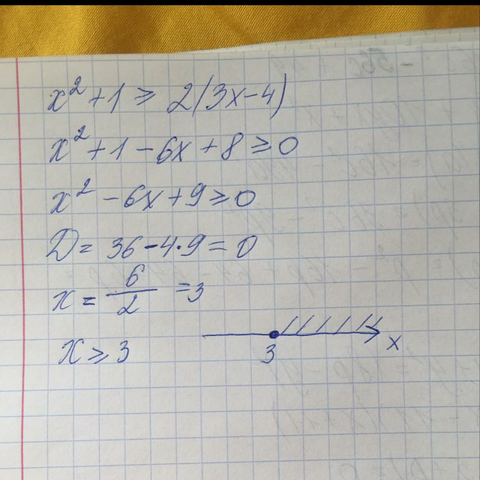 x² + 1 ≥ 2(3x - 4)
x² + 1 - 6x + 8 ≥ 0
x² - 6x + 9 ≥ 0
D = 36 - 4·9 = 0
x = 6/2 = 3
x ≥ 3
3 x